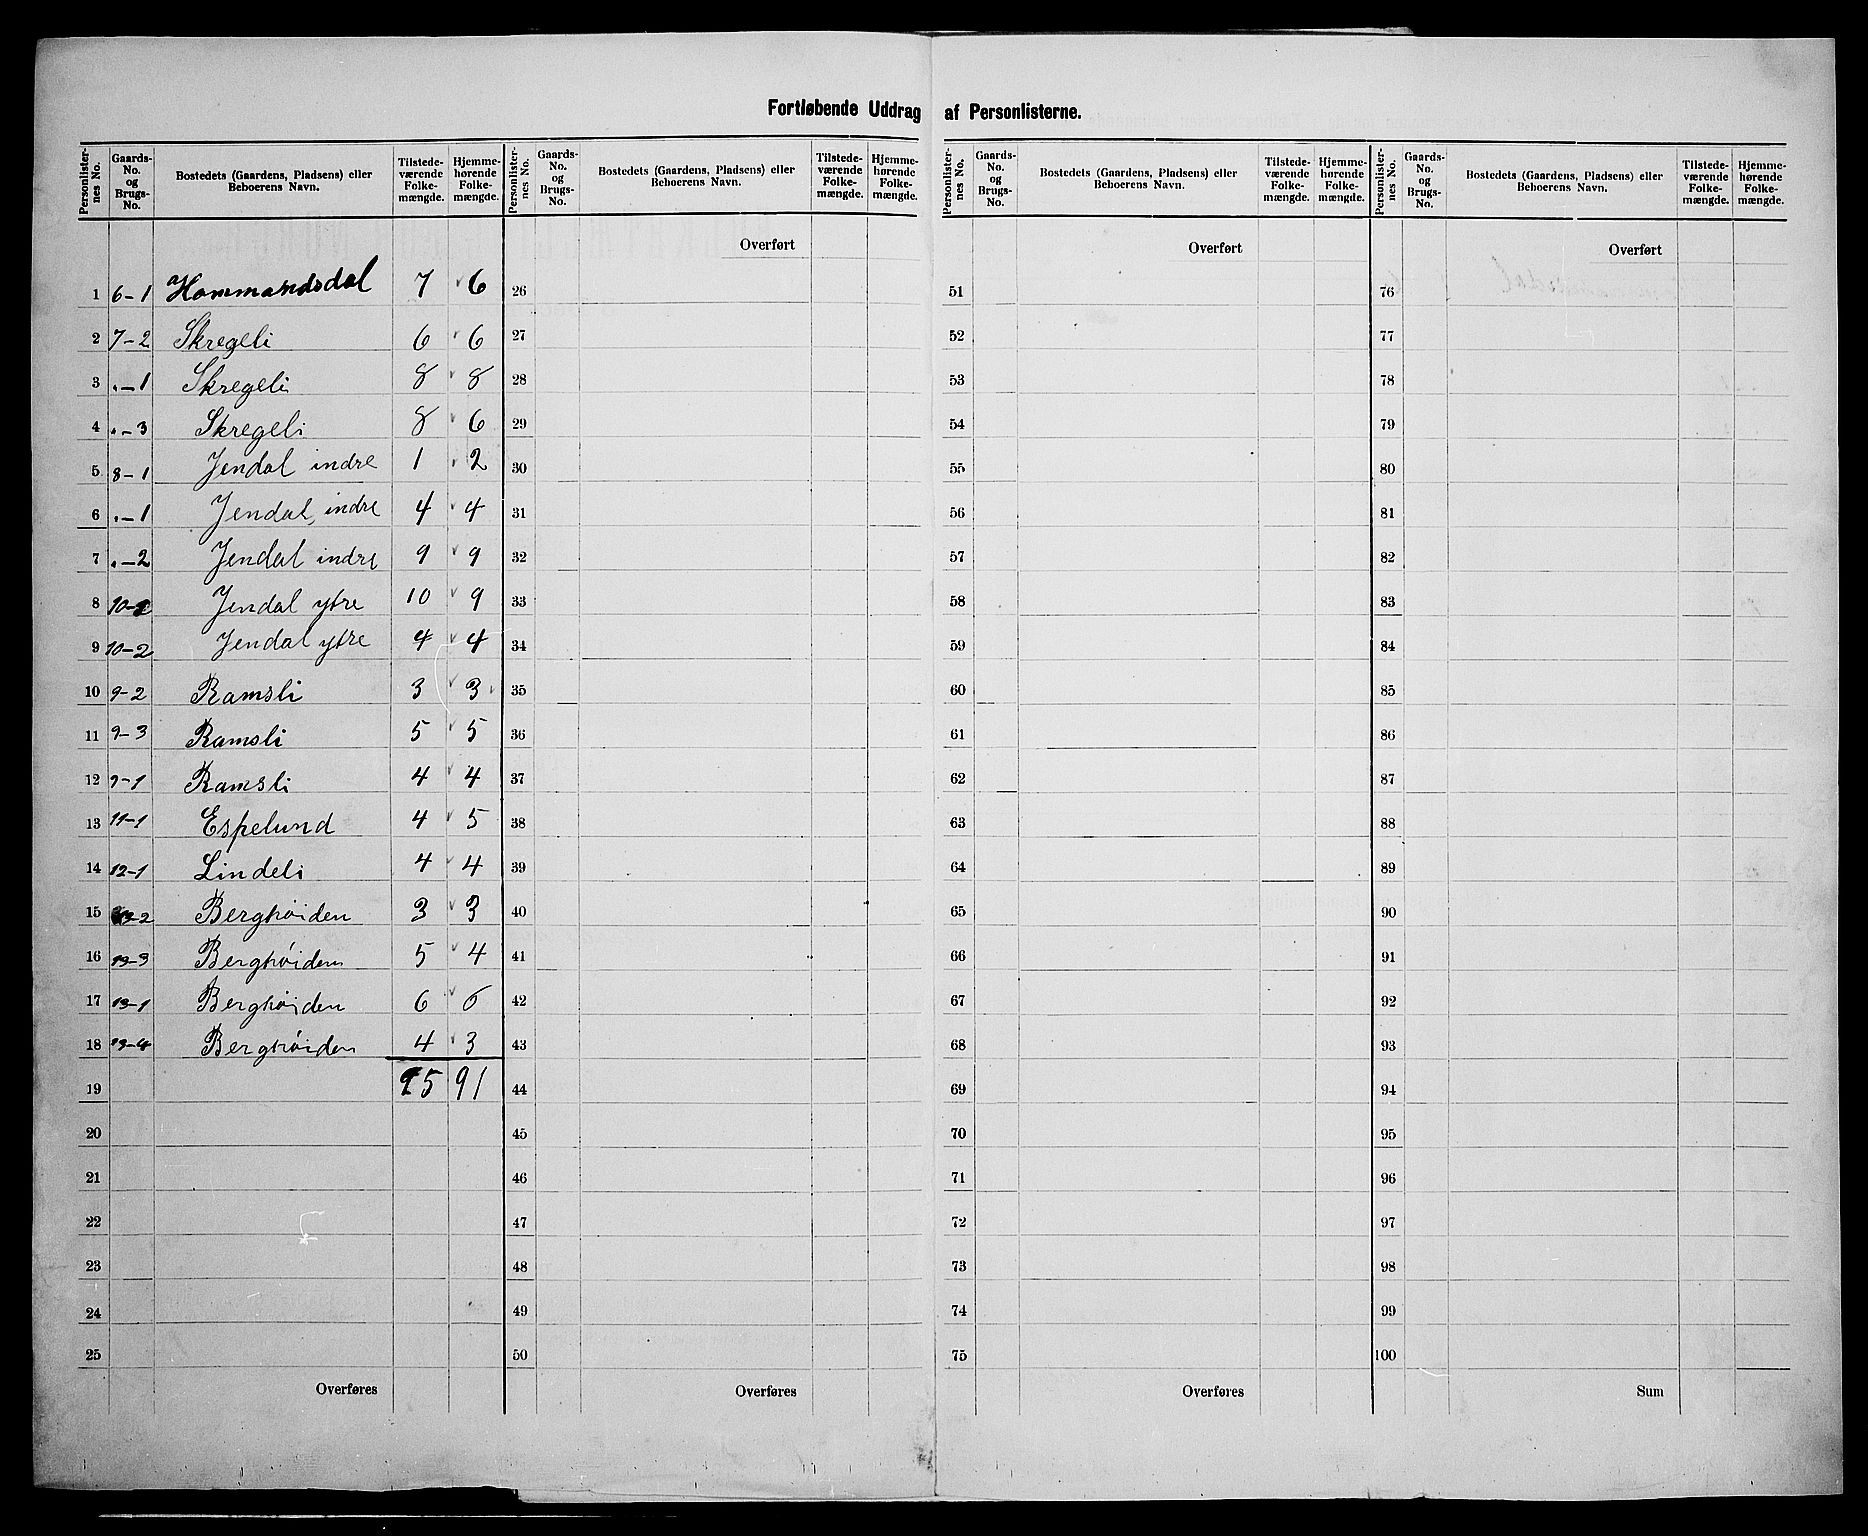 Fortløbende Uddrag af Personlisterne.
Personlister-nes No. | Gaards-No. og Brugs-No. | Bostedets (Gaardens, Pladsens) eller Beboerens Navn. | Tilstede-værende Folke-mængde. | Hjemme-hørende Folke-mængde.
1 6-1 Hommandsdal 7 6
2 7-2 Skregeli 6 6
3 „-1 Skregeli 8 8
4 „-3 Skregeli 8 6
5 8-1 Jendal indre 1 2
6 „-1 Jendal, indre 4 4
7 „-2 Jendal indre 9 9
8 Jendal ytre 10 9
9 10-2 Jendal ytre 4 4
10 9-2 Ramsli 3 3
11 9-3 Ramsli 5 5
12 9-1 Ramsli 4 4
13 11-1 Espelund 4 5
14 12-1 Lindeli 4 4
15 13-2 Berghöiden 3 3
16 13-3 Berghöiden 5 4
17 13-1 Berghöiden 6 6
18 13-4 Berghöiden 4 3
19 95 91
20
21
22
23
24
25
Overføres
Personlister-nes No. | Gaards-No. og Brugs-No. | Bostedets (Gaardens, Pladsens) eller Beboerens Navn. | Tilstede-værende Folke-mængde. | Hjemme-hørende Folke-mængde.
Overført
26
27
28
29
30
31
32
33
34
35
36
37
38
39
40
41
42
43
44
45
46
47
48
49
50
Overføres
Personlister-nes No. | Gaards-No. og Brugs-No. | Bostedets (Gaardens, Pladsens) eller Beboerens Navn. | Tilstede-værende Folke-mængde. | Hjemme-hørende Folke-mængde.
Overført
51
52
53
54
55
56
57
58
59
60
61
62
63
64
65
66
67
68
69
70
71
72
73
74
75
Overføres
Personlister-nes No. | Gaards-No. og Brugs-No. | Bostedets (Gaardens, Pladsens) eller Beboerens Navn. | Tilstede-værende Folke-mængde. | Hjemme-hørende Folke-mængde.
Overført
76
77
78
79
80
81
82
83
84
85
86
87
88
89
90
91
92
93
94
95
96
97
98
99
100
Sum